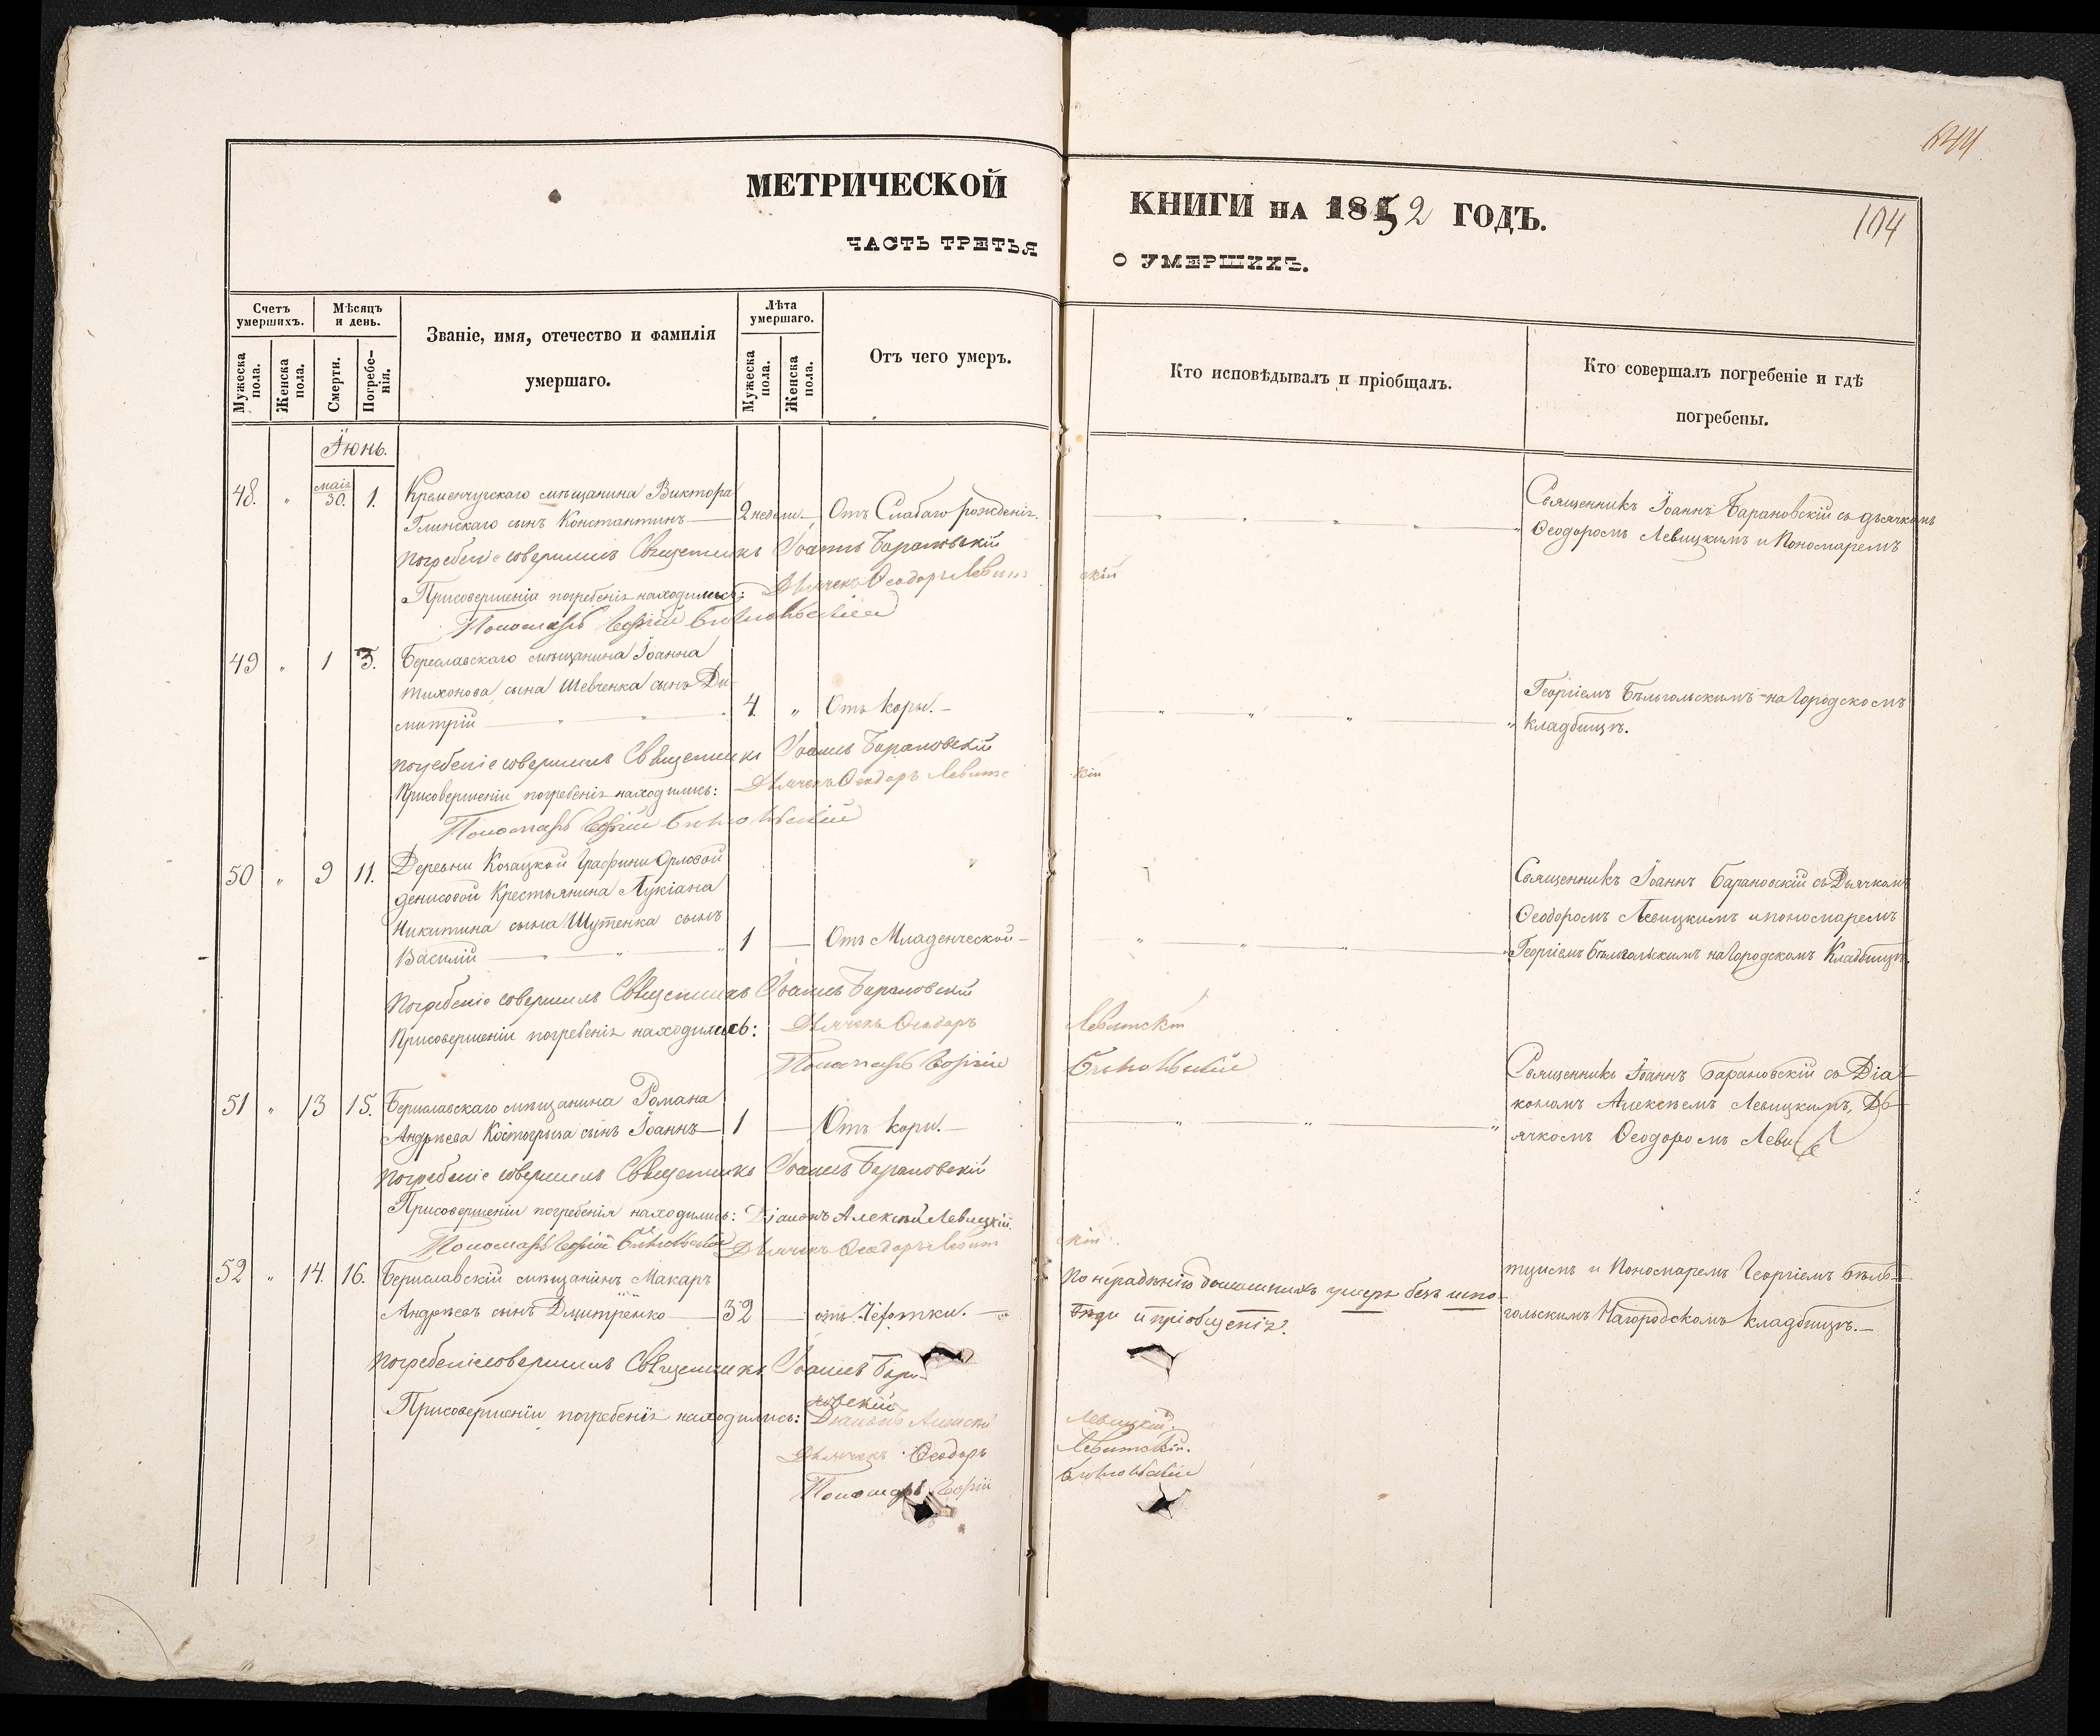 644
104
МЕТРИЧЕСКОЙ КНИГИ НА 1852 ГОДЪ.
ЧАСТЬ ТРЕТЬЯ О УМЕРШИХЪ.
Счетъ умершихъ.
Мужеска пола.
Женска пола.
Мѣсяцъ и день.
Смерти.
Погребенія.
Званіе, имя, отечество и фамилія
умершаго.
Лѣта умершаго.
Мужеска пола.
Женска пола.
Отъ чего умеръ.
Кто исповѣдывалъ и пріобщалъ.
Кто совершалъ погребеніе и гдѣ
погребены.
Іюнь.
48. " маія 30. 1. Кременчугскаго мѣщанина Виктора
Глинскаго сынъ Константинъ — 2 недели. — Отъ Слабаго рожденія.
Священникъ Іоаннъ Барановскій съ дьячкомъ
Ѳеодоромъ Левицкимъ и Пономаремъ
Погребеніе совершилъ Священникъ Іоаннъ Барановскій
Присовершеніи погребенія находились: Дьячекъ Ѳеодоръ Левитскій
Пономарь Георгій Бѣлогольскій
49 " 1 3. Береславскаго мѣщанина Іоанна
Тихонова сына Шевченка сынъ Ди-
митрій — 4 " Отъ кори. —
Георгіемъ Бѣльгольскимъ на Городскомъ
кладбищѣ.
Погребеніе совершилъ Священникъ Іоаннъ Барановскій
Присовершеніи погребенія находились: Дьячекъ Ѳеодоръ Левитскій
Пономарь Георгій Бѣлогольскій
50 " 9 11. Деревни Козацкой Графини Орловой
Денисовой Крестьянина Лукіана
Никитина сына Шутенка сынъ
Василій — 1 — Отъ Младенческой —
Священникъ Іоаннъ Барановскій съ Дьячкомъ
Ѳеодоромъ Левицкимъ и пономаремъ
Георгіемъ Бѣльгольскимъ на Городскомъ Кладбищѣ.
Погребеніе совершилъ Священникъ Іоаннъ Барановскій
Присовершеніи погребенія находились: Дьячекъ Ѳеодоръ Левитскій
Пономарь Георгій Бѣлогольскій
51 " 13 15. Бериславскаго мѣщанина Романа
Андрѣева Костогрыза сынъ Іоаннъ — 1 — Отъ кори. —
Священникъ Іоаннъ Барановскій съ Діа-
кономъ Алексѣемъ Левицкимъ, Дь-
ячкомъ Ѳеодоромъ Леви
Погребеніе совершилъ Священникъ Іоаннъ Барановскій
Присовершеніи погребенія находились: Діаконъ Алексѣй Левицкій
Пономарь Георгій Бѣлогольскій Дьячекъ Ѳеодоръ Левитскій
52 " 14. 16. Бериславскій мѣщанинъ Макаръ
Андрѣевъ сынъ Дмитренко — 32 — отъ Чехотки. —
По нерадѣнію домашнихъ умеръ безъ испо-
вѣди и пріобщенія.
тцимъ и Пономаремъ Георгіемъ Бѣль-
гольскимъ На городскомъ кладбищѣ. —
Погребеніе совершилъ Священникъ Іоаннъ Бара-
новскій
Присовершеніи погребенія находились: Діаконъ Алексѣй Левицкій.
Дьячекъ Ѳеодоръ Левитскій.
Пономарь Георгій Бѣлогольскій